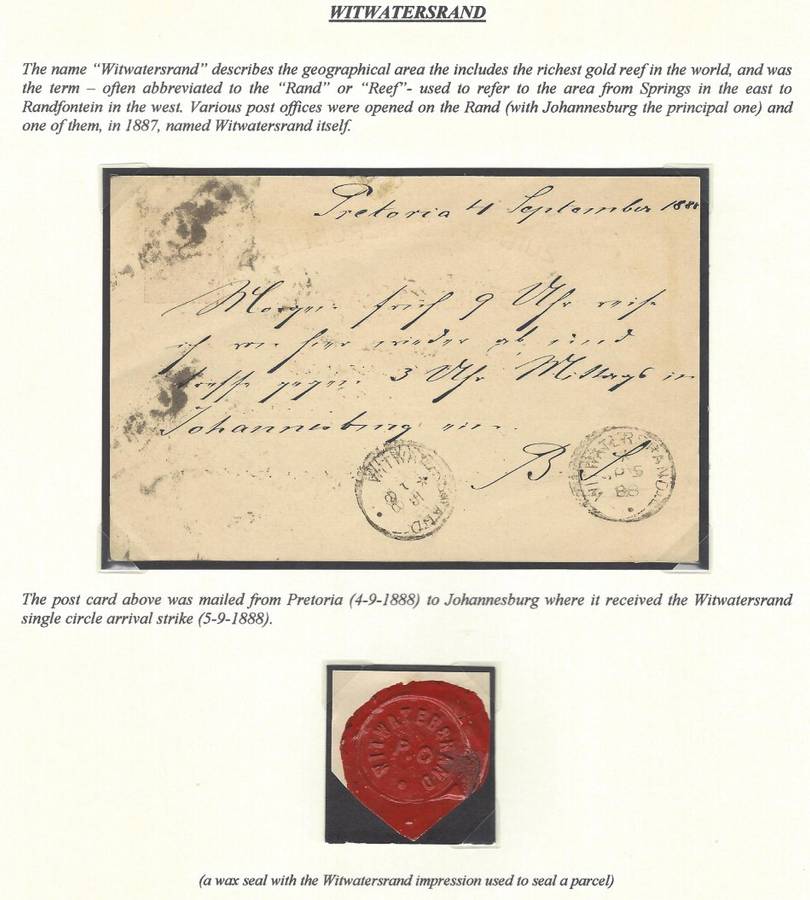 WITWATERSRAND
The name “Witwatersrand” describes the geographical area the includes the richest gold reef in the world, and was
the term – often abbreviated to the “Rand” or “Reef”- used to refer to the area from Springs in the east to
Randfontein in the west. Various post offices were opened on the Rand (with Johannesburg the principal one) and
one of them, in 1887, named Witwatersrand itself.
Pretoria 4 September 1888
Morgen früh 9 Uhr reise
ich von hier wieder ab und
treffe gegen 3 Uhr Mittags in
Johannesburg ein.
B S
WITWATERSRAND
WITWATERSRAND
SP 5
88
The post card above was mailed from Pretoria (4-9-1888) to Johannesburg where it received the Witwatersrand
single circle arrival strike (5-9-1888).
WITWATERSRAND
P.O
(a wax seal with the Witwatersrand impression used to seal a parcel)